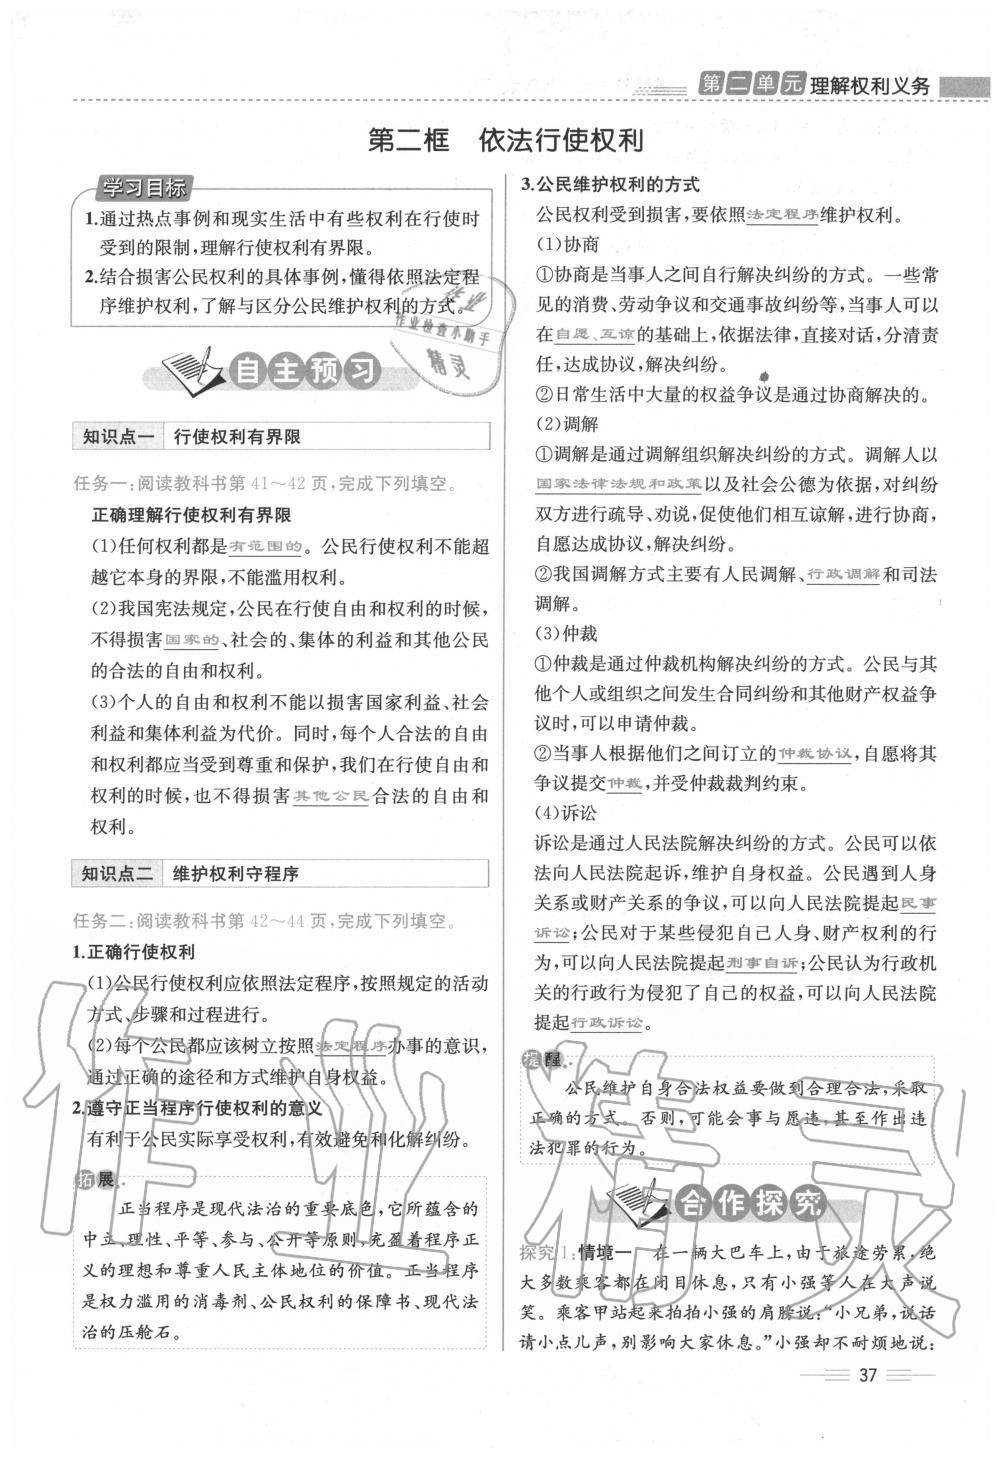 第二单元 理解权利义务
第二框 依法行使权利
学习目标
1.通过热点事例和现实生活中有些权利在行使时
受到的限制,理解行使权利有界限。
2.结合损害公民权利的具体事例,懂得依照法定程
序维护权利,了解与区分公民维护权利的方式。
作业
作业检查小助手
精灵
自主预习
知识点一 行使权利有界限
任务一:阅读教科书第41～42页,完成下列填空。
正确理解行使权利有界限
(1)任何权利都是有范围的。公民行使权利不能超
越它本身的界限,不能滥用权利。
(2)我国宪法规定,公民在行使自由和权利的时候,
不得损害国家的、社会的、集体的利益和其他公民
的合法的自由和权利。
(3)个人的自由和权利不能以损害国家利益、社会
利益和集体利益为代价。同时,每个人合法的自由
和权利都应当受到尊重和保护,我们在行使自由和
权利的时候,也不得损害其他公民合法的自由和
权利。
知识点二 维护权利守程序
任务二:阅读教科书第42～44页,完成下列填空。
1.正确行使权利
(1)公民行使权利应依照法定程序,按照规定的活动
方式、步骤和过程进行。
(2)每个公民都应该树立按照法定程序办事的意识,
通过正确的途径和方式维护自身权益。
2.遵守正当程序行使权利的意义
有利于公民实际享受权利,有效避免和化解纠纷。
拓展
正当程序是现代法治的重要底色,它所蕴含的
中立、理性、平等、参与、公开等原则,充盈着程序正
义的理想和尊重人民主体地位的价值。正当程序
是权力滥用的消毒剂、公民权利的保障书、现代法
治的压舱石。
3.公民维护权利的方式
公民权利受到损害,要依照法定程序维护权利。
(1)协商
①协商是当事人之间自行解决纠纷的方式。一些常
见的消费、劳动争议和交通事故纠纷等,当事人可以
在自愿、互谅的基础上,依据法律,直接对话,分清责
任,达成协议,解决纠纷。
②日常生活中大量的权益争议是通过协商解决的。
(2)调解
①调解是通过调解组织解决纠纷的方式。调解人以
国家法律法规和政策以及社会公德为依据,对纠纷
双方进行疏导、劝说,促使他们相互谅解,进行协商,
自愿达成协议,解决纠纷。
②我国调解方式主要有人民调解、行政调解和司法
调解。
(3)仲裁
①仲裁是通过仲裁机构解决纠纷的方式。公民与其
他个人或组织之间发生合同纠纷和其他财产权益争
议时,可以申请仲裁。
②当事人根据他们之间订立的仲裁协议,自愿将其
争议提交仲裁,并受仲裁裁判约束。
(4)诉讼
诉讼是通过人民法院解决纠纷的方式。公民可以依
法向人民法院起诉,维护自身权益。公民遇到人身
关系或财产关系的争议,可以向人民法院提起民事
诉讼;公民对于某些侵犯自己人身、财产权利的行
为,可以向人民法院提起刑事自诉;公民认为行政机
关的行政行为侵犯了自己的权益,可以向人民法院
提起行政诉讼。
提醒
公民维护自身合法权益要做到合理合法,采取
正确的方式。否则,可能会事与愿违,甚至作出违
法犯罪的行为。
合作探究
探究1:情境一 在一辆大巴车上,由于旅途劳累,绝
大多数乘客都在闭目休息,只有小强等人在大声说
笑。乘客甲站起来拍拍小强的肩膀说:“小兄弟,说话
请小点儿声,别影响大家休息。”小强却不耐烦地说:
37
作业精灵